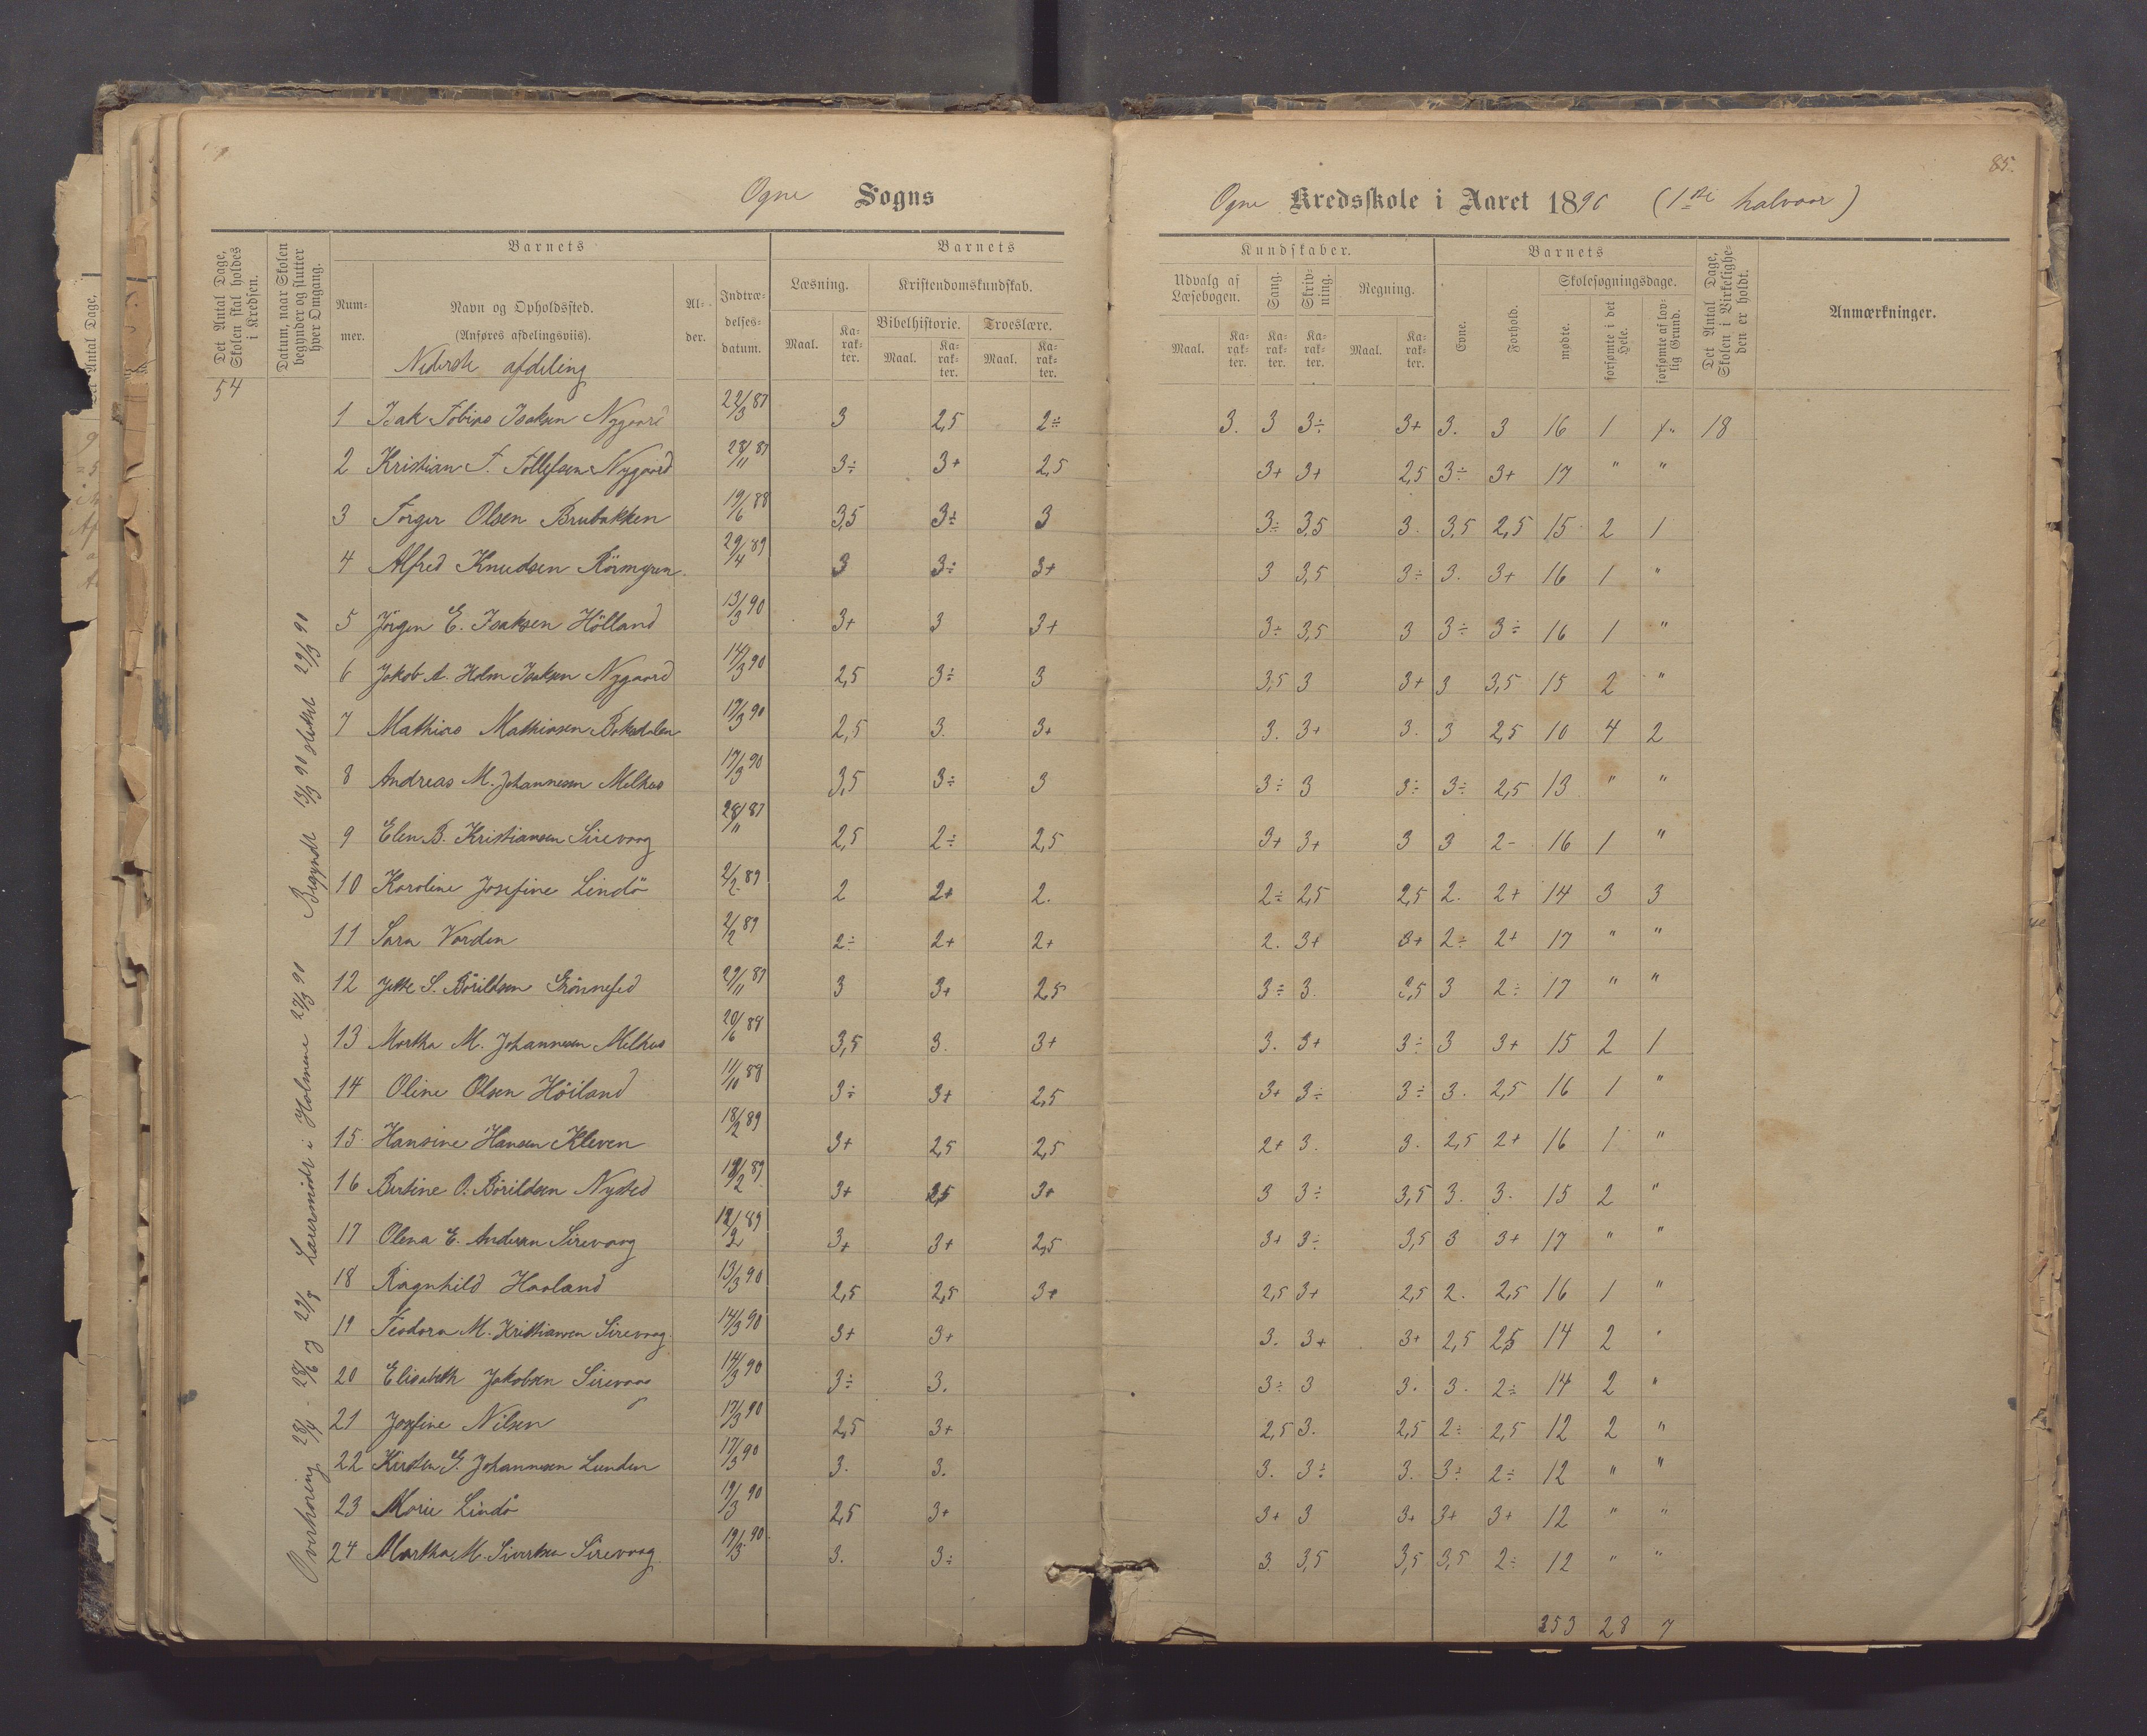 85.
Ogne Sogns
Ogne Kredsskole i Aaret 1890 (1ste halvaar)
Det Antal Dage, Skolen skal holdes i Kredsen.
Datum, naar Skolen begynder og slutter hver Omgang.
Barnets
Nummer.
Navn og Opholdssted.
(Anføres afdelingsviis).
Alder.
Indtrædelsesdatum.
Barnets
Læsning.
Kristendomskundskab.
Bibelhistorie.
Troeslære.
Maal. Karakter. Maal. Karakter. Maal. Karakter.
Kundskaber.
Udvalg af Læsebogen.
Sang.
Skrivning.
Regning.
Maal. Karakter. Karakter. Karakter. Maal. Karakter.
Barnets
Evne.
Forhold.
Skolesøgningsdage.
mødte.
forsømte i det Hele.
forsømte af lovlig Grund.
Det Antal Dage, Skolen i Virkeligheden er holdt.
Anmærkninger.
Nederste afdeling
54
1 Isak Tobias Isaksen Nygaard 22/3 87 3 2,5 2÷ 3. 3 3÷ 3+ 3. 3 16 1 18
2 Kristian T. Tollefsen Nygaard 28/11 87 3÷ 3+ 2,5 3+ 3+ 2,5 3÷ 3+ 17 " "
3 Torger Olsen Brubakken 19/6 88 3,5 3÷ 3 3÷ 3,5 3. 3,5 2,5 15 2 1
4 Alfred Knudsen 29/4 89 3 3÷ 3+ 3 3,5 3÷ 3. 3+ 16 1 "
5 Jörgen E. Isaksen Hölland 13/3 90 3+ 3 3+ 3÷ 3,5 3 3÷ 3÷ 16 1 "
6 Jakob A. Holm Isaksen Nygaard 14/3 90 2,5 3÷ 3 3,5 3 3+ 3 3,5 15 2 "
7 Mathias Mathiasen 17/3 90 2,5 3. 3+ 3. 3+ 3. 3 2,5 10 4 2
8 Andreas M. Johannesen Melhus 17/3 90 3,5 3÷ 3 3÷ 3 3÷ 3÷ 2,5 13 " "
9 Elen B. Kristiansen Sirevaag 28/11 87 2,5 2÷ 2,5 3+ 3+ 3 3 2- 16 1 "
10 Karoline Josefine Lindö 2/2 89 2 2+ 2. 2÷ 2,5 2,5 2. 2+ 14 3 3
11 Sara Varden 2/2 89 2÷ 2+ 2+ 2. 3+ 3+ 2÷ 2+ 17 " "
12 Jette S. Börildsen Grönnesed 29/11 87 3 3+ 2,5 3÷ 3. 3,5 3 2÷ 17 " "
13 Martha M. Johannesen Melhus 20/6 88 3,5 3. 3+ 3. 3+ 3÷ 3 3+ 15 2 1
14 Oline Olsen Höiland 11/10 88 3÷ 3+ 2,5 3+ 3÷ 3÷ 3. 2,5 16 1 "
15 Hansine Hansen Kleven 18/2 89 3+ 2,5 2,5 2+ 3. 3. 2,5 2+ 16 1 "
16 Bertine O. Börildsen Nysted 3+ 2,5 3+ 3 3÷ 3,5 3. 3. 15 2 "
17 Olena E. Andersen Sirevaag 3+ 3+ 2,5 3+ 3÷ 3,5 3 3+ 17 " "
18 Ragnhild Haaland 13/3 90 2,5 2,5 3+ 2,5 3+ 2,5 2. 2,5 16 1 "
19 Teodora M. Kristiansen Sirevaag 14/3 90 3+ 3+ 3. 3+ 3+ 2,5 2,5 14 2 "
20 Elisabeth Jakobsen Sirevaag 14/3 90 3÷ 3. 3÷ 3 3. 3. 2÷ 14 2 "
21 Josefine Nilsen 17/3 90 2,5 3+ 2,5 3. 2,5 2÷ 2,5 12 2 "
22 Kirsten G. Johannesen Lunden 17/3 90 3. 3. 3. 3÷ 3. 3÷ 2÷ 12 " "
23 Marie Lindö 19/3 90 2,5 3+ 3+ 3 3+ 3+ 3+ 12 " "
24 Martha M. Sivertsen Sirevaag 19/3 90 3. 3÷ 3 3,5 3,5 3,5 2÷ 12 " "
353 28 7
Overhøring 28/4 - 28/6 Lærermöde i Holmene 27/3 90 Begyndt 13/3 90 sluttet 29/3 90